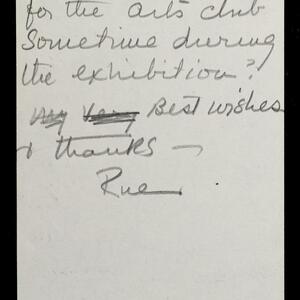 for the arts club
Sometime during
the exhibition?
My Very Best wishes
+ thanks —
Rue